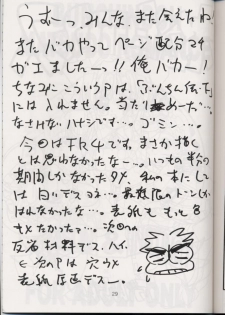 うむーっ、みんな、また会えたね!
またバカやってページ配分マチ
ガエましたーっ!!俺バカー!
ちなみにこういうPは、「ぶんちん伝」
には入れません。当たり めーだ…。
なさけないハナシです…。ゴミン…。
今回はFK4です。まさか描く
とは思わなかったなー…。いつもの半分の
期間しかなかったタメ、私の本にし
は白いデスよネ…。最低限のトーンしか
はれなかたな…。表紙ももっと8
んたかったァ…。次回への
反省材料デス。ハイ。
このPは穴うメ
表紙原画デスー。
28